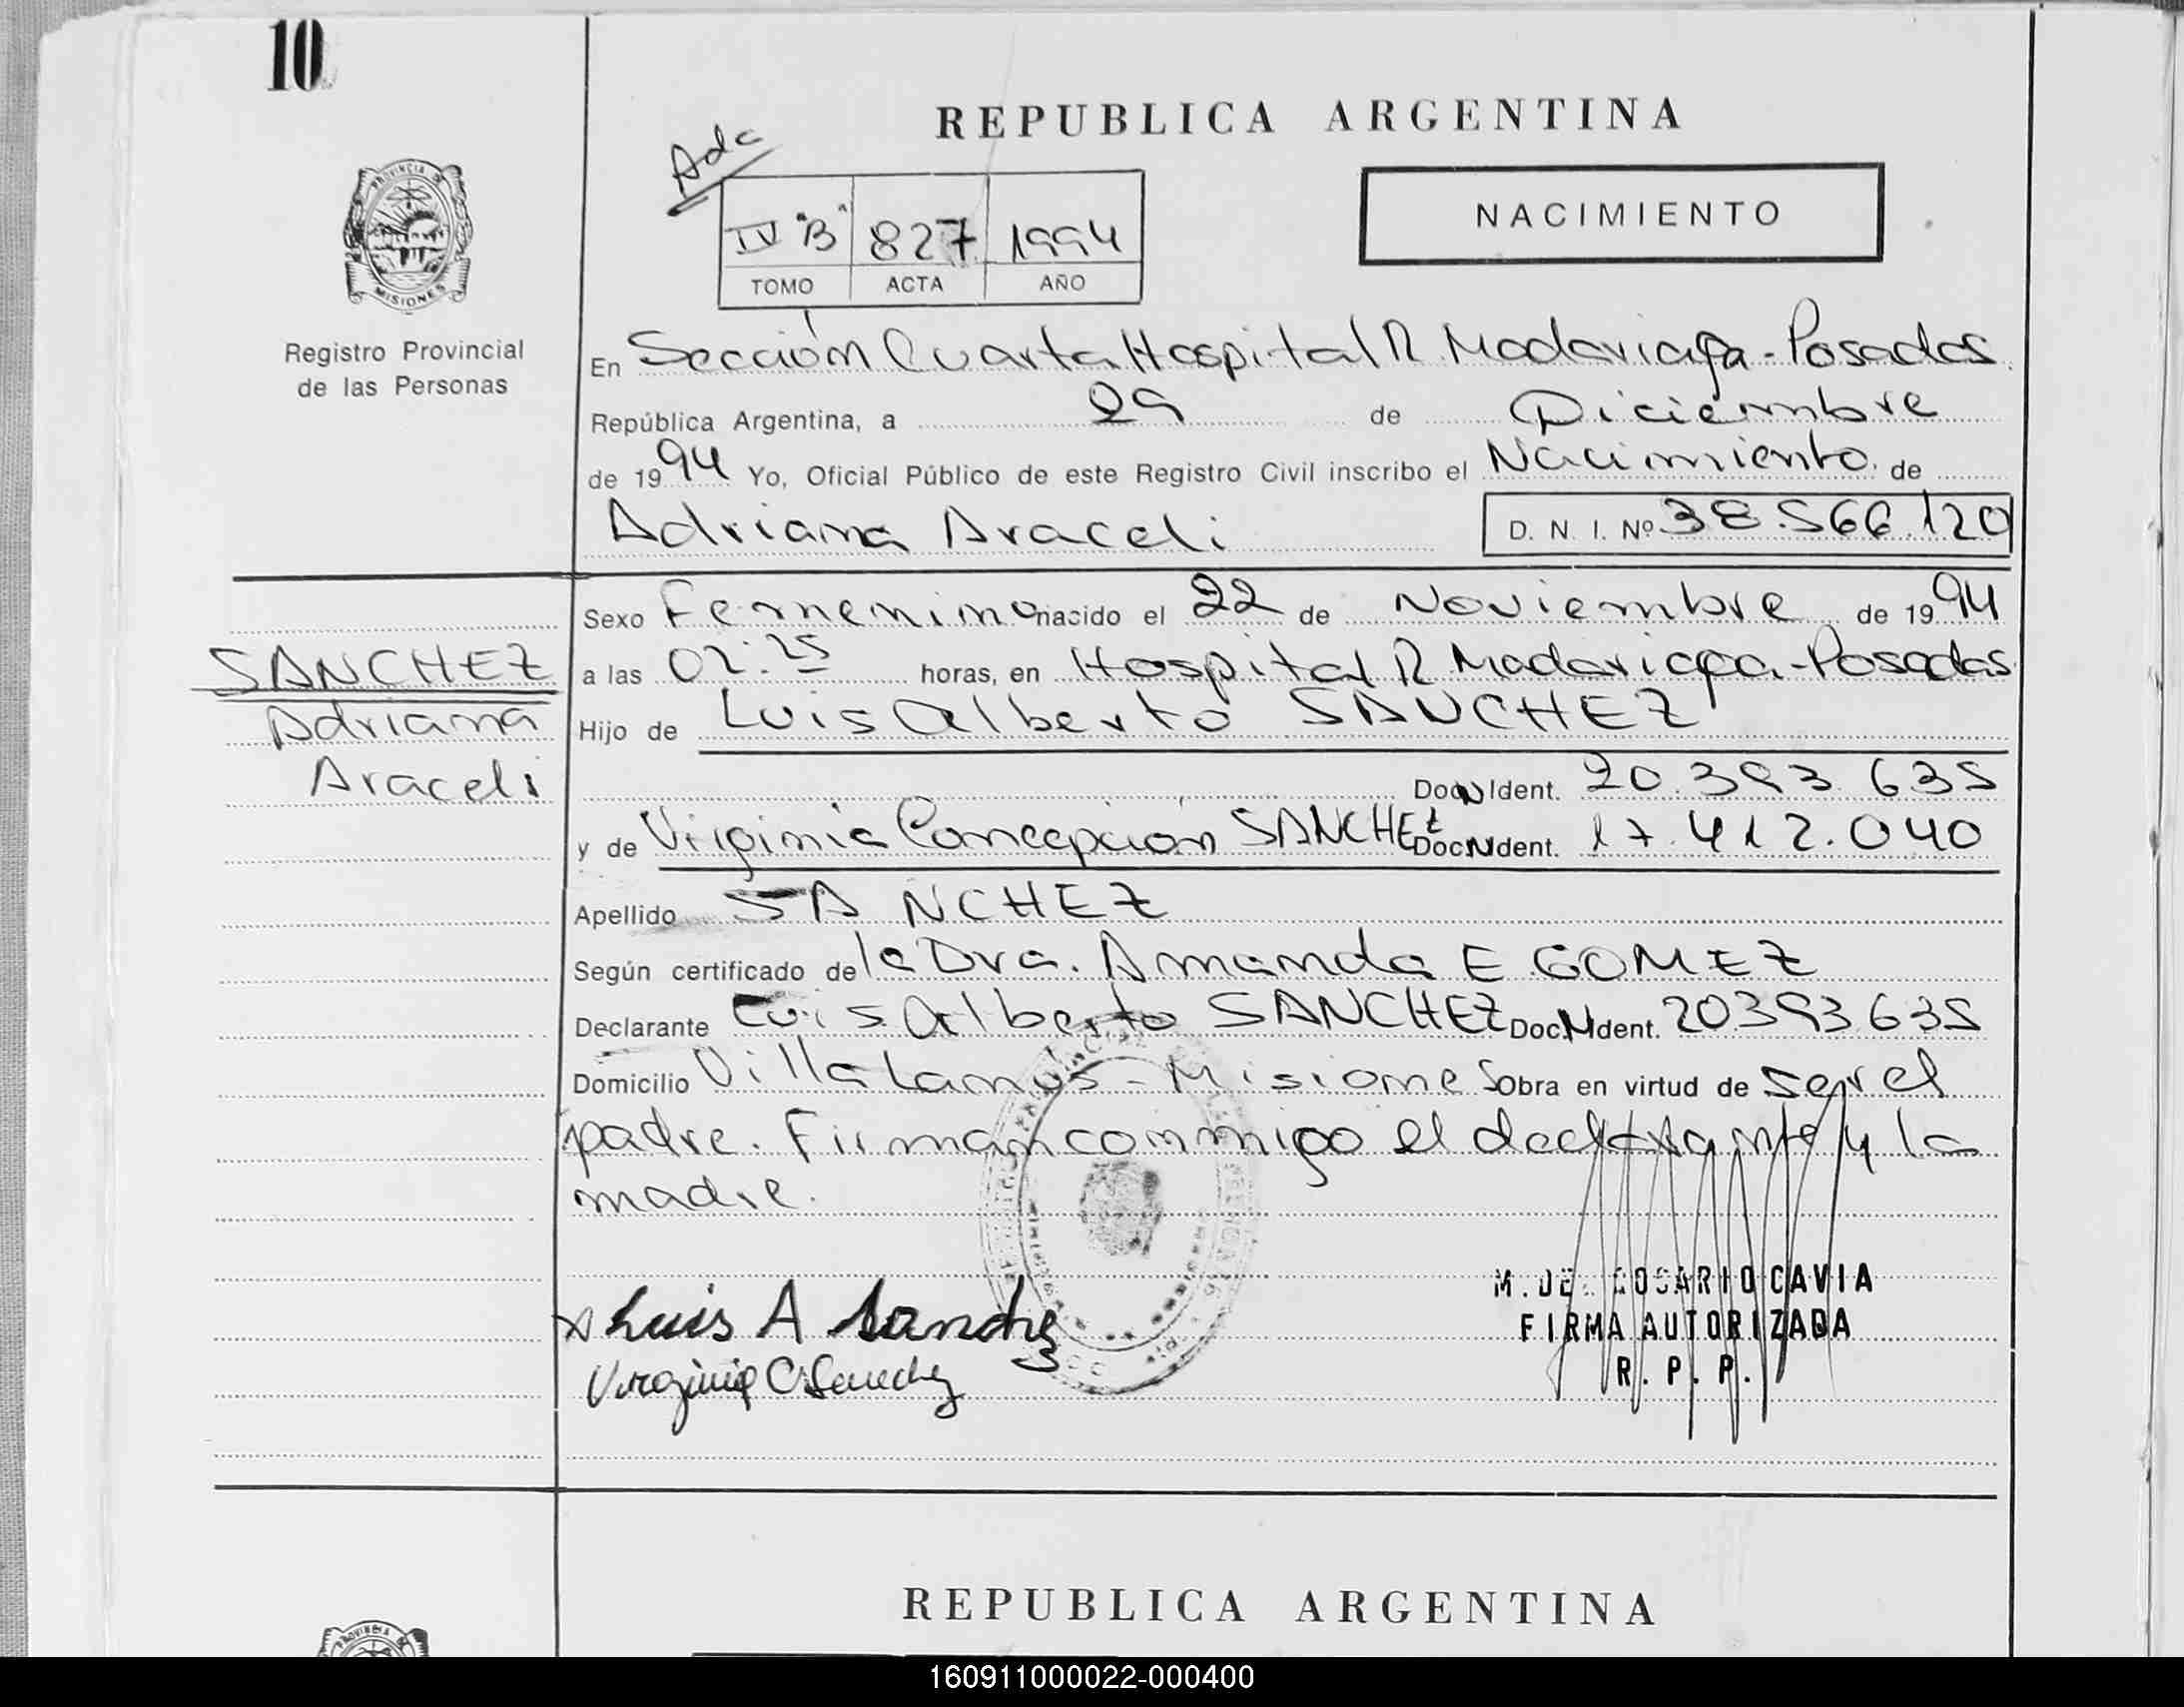 10
REPUBLICA ARGENTINA
Adc
NACIMIENTO
PROVINCIA DE
MISIONES
IV "B" 827 1994
TOMO ACTA AÑO
Registro Provincial
de las Personas
En Sección Cuarta Hospital R. Madariaga - Posadas
República Argentina, a 29 de Diciembre
de 1994 Yo, Oficial Público de este Registro Civil inscribo el Nacimiento de
Adriana Araceli D. N. I. Nº 38.566.120
Sexo Femenino nacido el 22 de Noviembre de 1994
SANCHEZ
Adriana
Araceli
a las 02:25 horas, en Hospital R. Madariaga - Posadas
Hijo de Luis Alberto SANCHEZ
Doc N Ident. 20.393.635
y de Virginia Concepción SANCHEZ Doc N Ident. 17.412.040
Apellido SANCHEZ
Según certificado de la Dra. Amanda E GOMEZ
Declarante Luis Alberto SANCHEZ Doc. N Ident. 20393635
Domicilio Villa Lanús - Misiones obra en virtud de ser el
padre. Firman conmigo el declarante y la
madre.
Luis A Sanchez
Virginia C Sanchez
M. DEL ROSARIO CAVIA
FIRMA AUTORIZADA
R. P. P.
REPUBLICA ARGENTINA
160911000022-000400